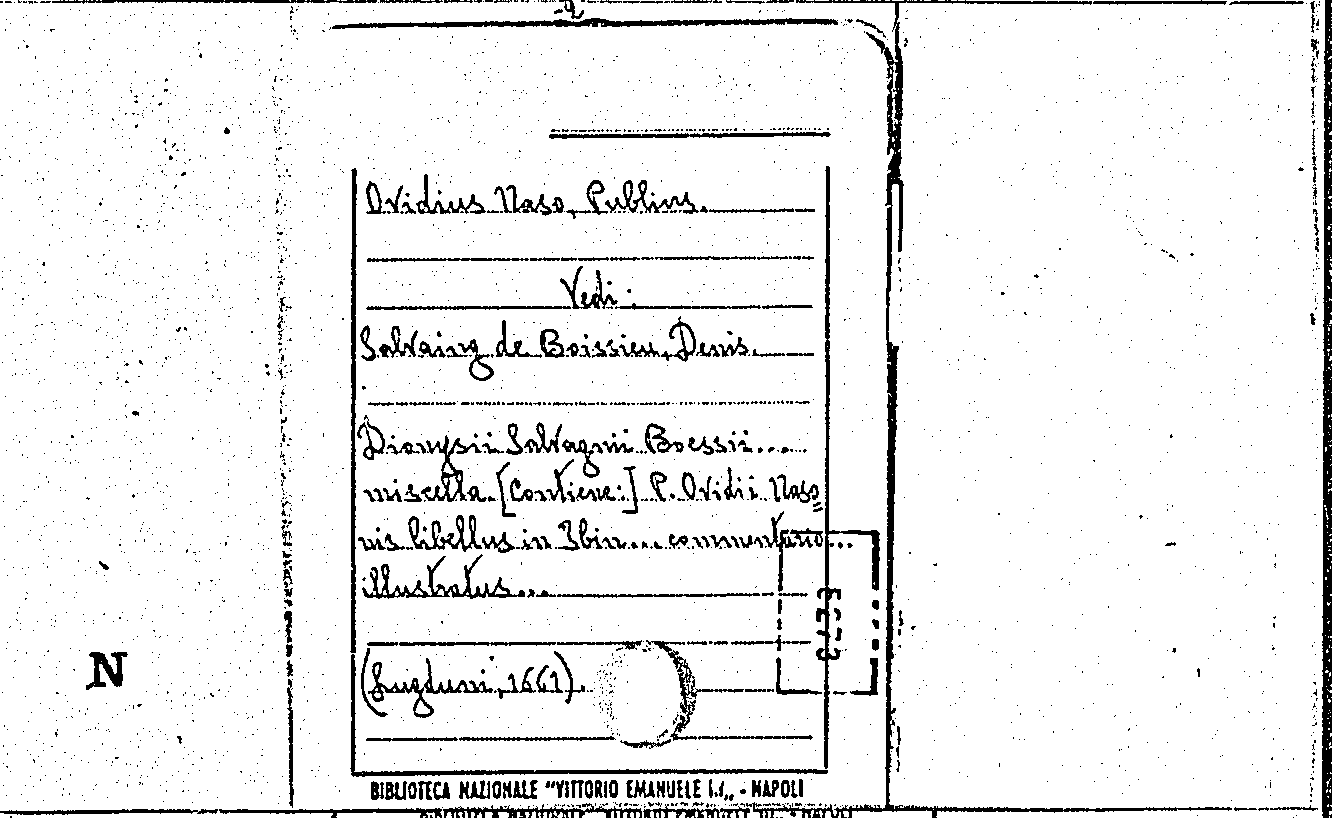 Ovidius Naso, Publius.
Vedi:
Salvaing de Boissieu, Denis.
Dionysii Salvagnii Boessii...
miscella. [Contiene:] P. Ovidii Naso=
nis libellus in Ibin... commentario...
illustratus...
(Lugduni, 1661).
N
BIBLIOTECA NAZIONALE "VITTORIO EMANUELE - NAPOLI